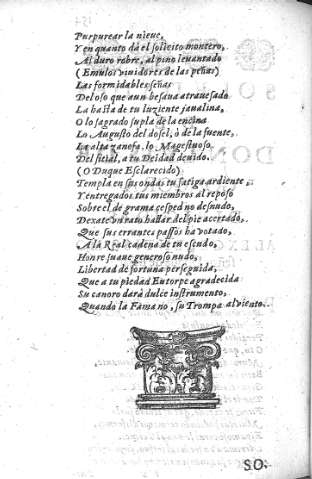 Purpurear la nieue,
Y en quanto dá el solicito montero,
Al duro robre, al pino leuantado
(Emulos viuidores de las peñas)
Las formidables señas
Del oso que aun besaua atrauesado
La hasta de tu luziente jaualina,
O lo sagrado supla de la encina
Lo Augusto del dosel, ò de la fuente,
La alta zanefa, lo Magestuoso
Del sitial, a tu Deidad deuido.
(O Duque Esclarecido)
Templa en sus ondas tu fatiga ardiente,
Y entregados tus miembros al reposo
Sobre el de grama cesped no desnudo,
Dexate vn rato hallar del pie acertado,
Que sus errantes passos ha votado,
A la Real cadena de tu escudo,
Honre suaue generoso nudo,
Libertad de fortuna perseguida,
Que a tu piedad Euterpe agradecida
Su canoro darà dulce instrumento,
Quando la Fama no, su Trompa al viento.
SO-